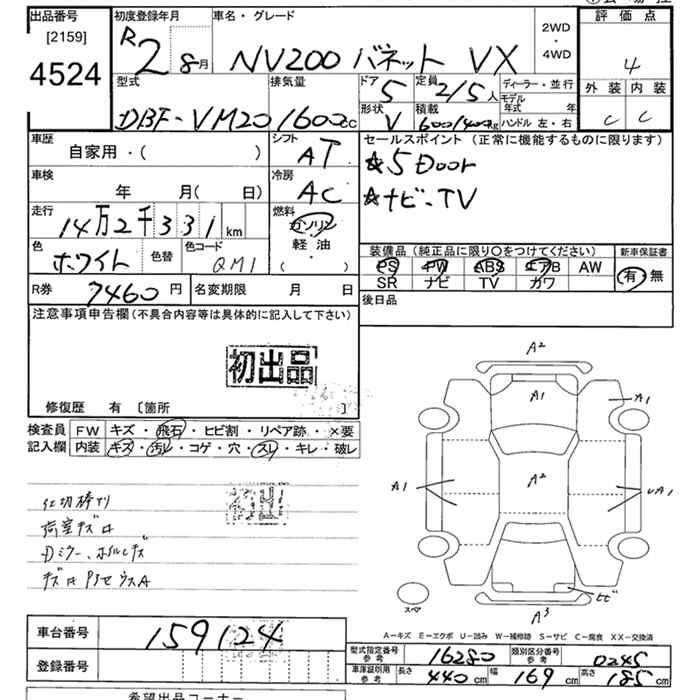 出品番号
[2159]
4524
初度登録年月
R2 8月
車名・グレード
NV200 バネット VX
2WD
・
4WD
評価点
4
外装 内装
C C
型式
DBF-VM20
排気量
1600cc
ドア
5
定員
2/5人
ディーラー・並行
モデル年式 年
ハンドル 左・右
形状
V
積載
600/400kg
車歴
自家用・( )
シフト
AT
セールスポイント (正常に機能するものに限ります)
☆5Door
☆ナビ、TV
車検
年 月( 日)
冷房
AC
走行
14万2千331km
燃料
ガソリン
軽油
( ・ )
色
ホワイト
色替
色コード
QM1
装備品 (純正品に限り○をつけてください)
PS PW ABS エアB AW
SR ナビ TV カワ
新車保証書
有 無
R券 7460円
名変期限 月 日
後日品
注意事項申告欄(不具合内容等は具体的に記入して下さい)
初出品
修復歴 有 [箇所 ]
検査員
記入欄
FW キズ・飛石・ヒビ割・リペア跡・×要
内装 キズ・汚レ・コゲ・穴・スレ・キレ・破レ
仕切棒アリ
荷室キズ
Dミラー、
A2
A1
A1
A1
A2
A1
A3
スペア
A-キズ E-エクボ U-凹み W-補修跡 S-サビ C-腐食 XX-交換済
車台番号 159124
登録番号
型式指定番号 参考 16280
類別区分番号 参考 0245
車庫証明用 参考 長さ 440cm 幅 169cm 高さ 185cm
希望出品コーナー